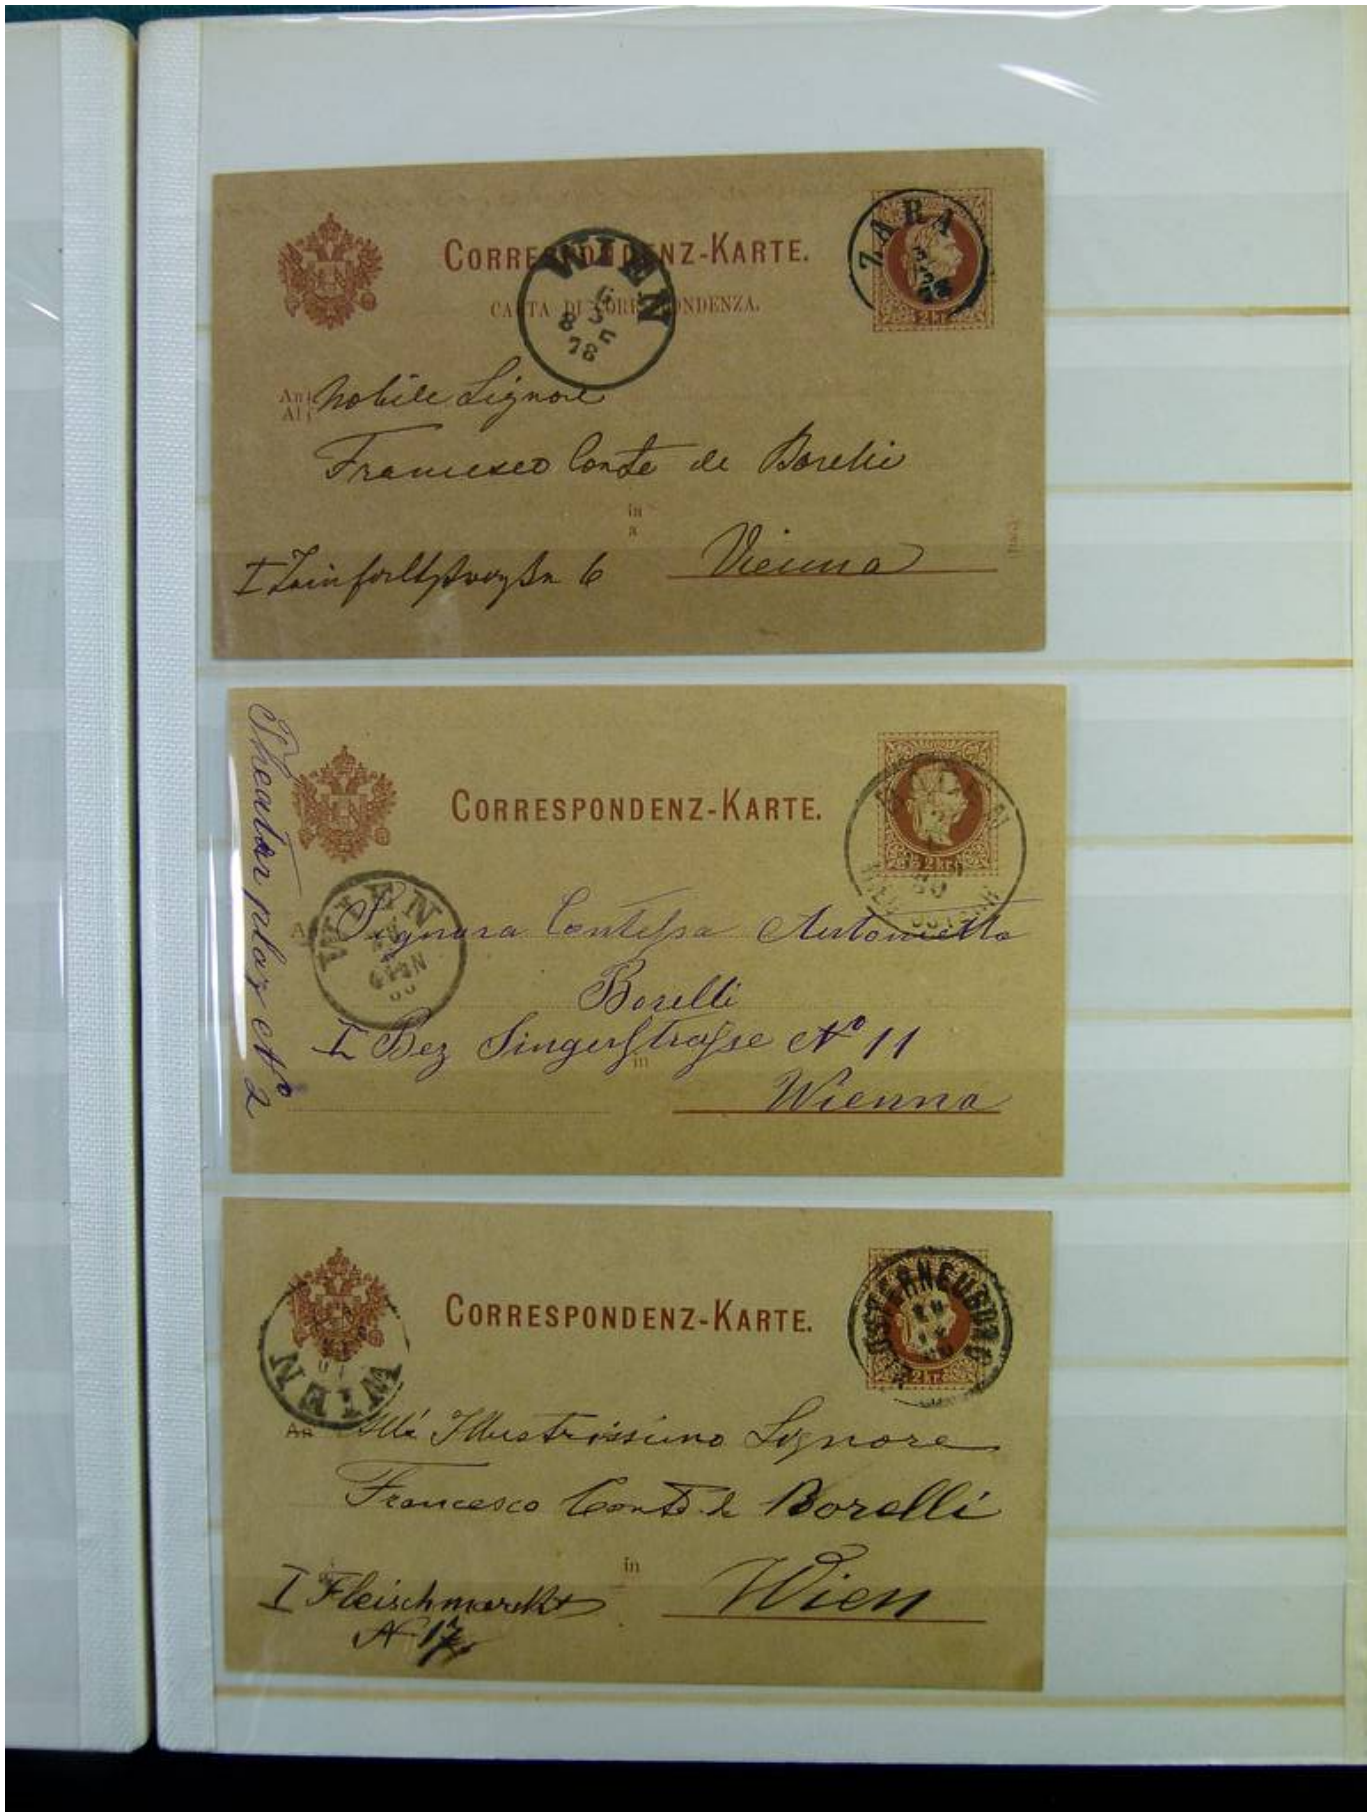 CORRESPONDENZ-KARTE.
CARTA DI CORRISPONDENZA.
ZARA
2 kr.
WIEN
6
5
8
78
An
Al
Nobile Signore
Francesco Conte de Borelli
in
a
Vienna
I 6
Theater plaz No 2
CORRESPONDENZ-KARTE.
2 kr.
WIEN
Signora Contessa Antonietta
Borelli
I Bez Singerstrasse No 11
in
Wienna
CORRESPONDENZ-KARTE.
KLOSTERNEUBURG
2 kr.
WIEN
An
All' Illustrissimo Signore
Francesco Conte de Borelli
in
I Fleischmarkt
Wien
N 17